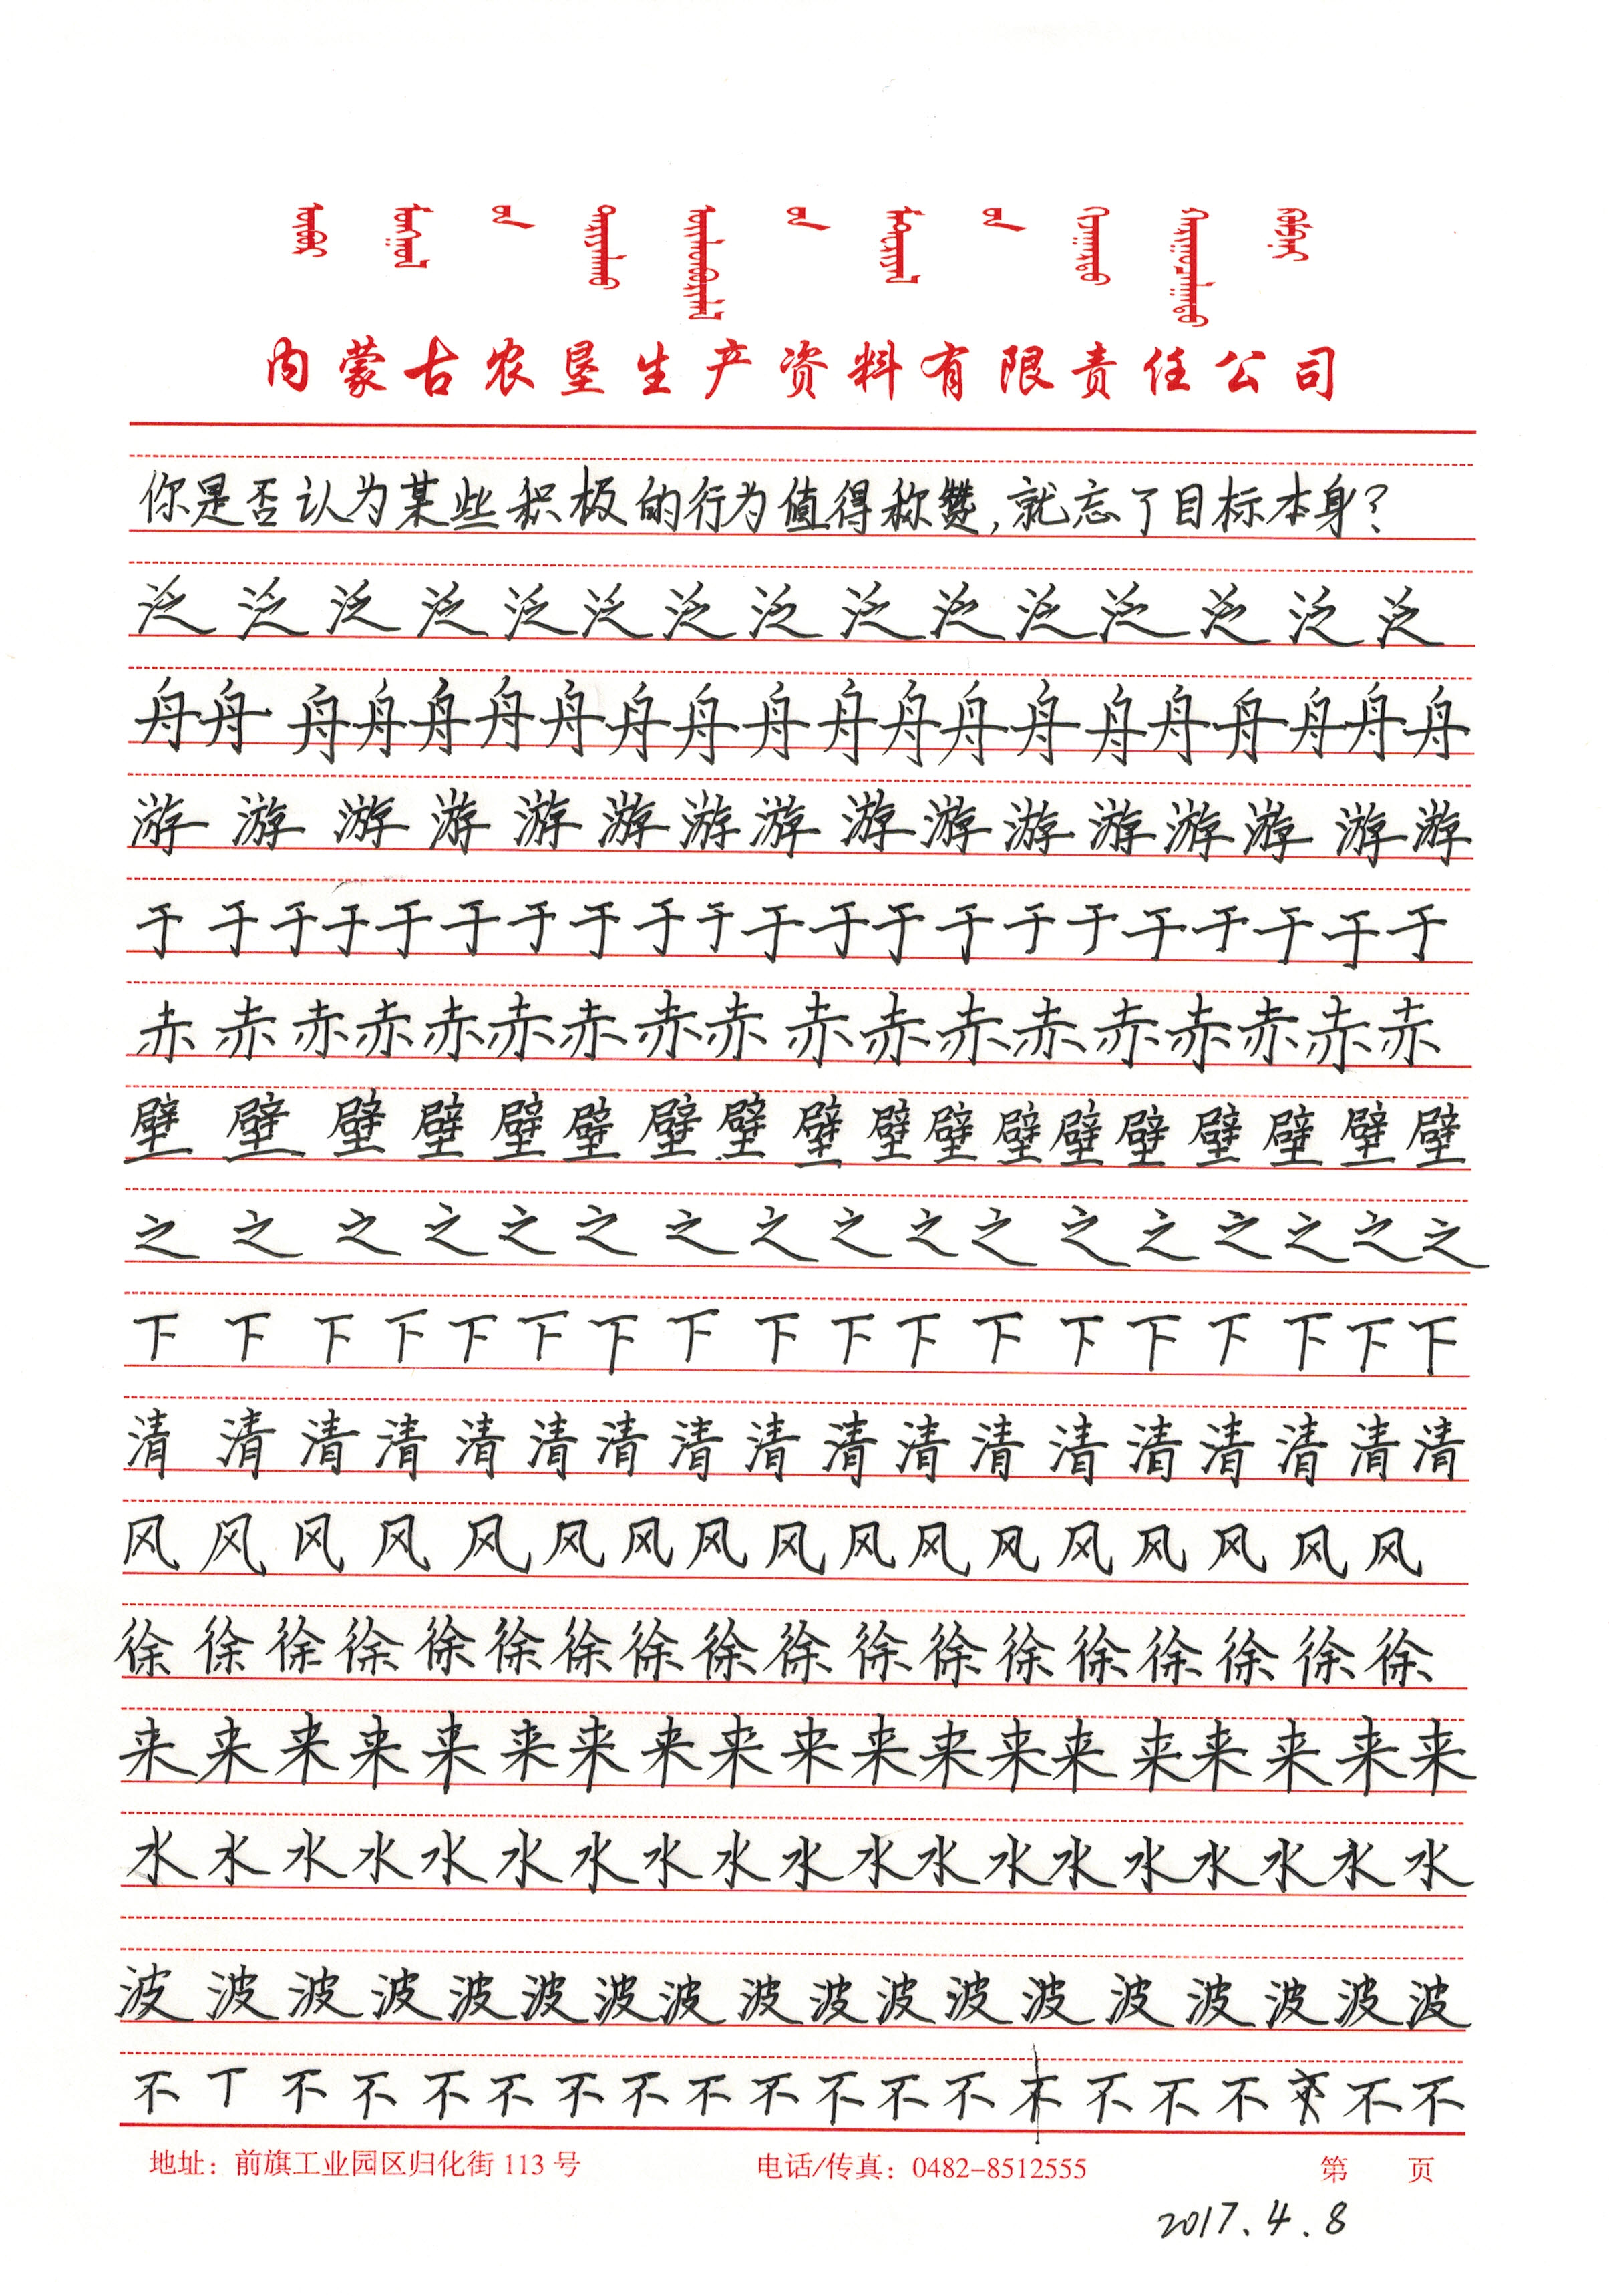 内蒙古农垦生产资料有限责任公司
你是否认为某些积极的行为值得称赞,就忘了目标本身?
泛 泛 泛 泛 泛 泛 泛 泛 泛 泛 泛 泛 泛 泛 泛
舟 舟 舟 舟 舟 舟 舟 舟 舟 舟 舟 舟 舟 舟 舟 舟 舟 舟 舟 舟
游 游 游 游 游 游 游 游 游 游 游 游 游 游 游 游
于 于 于 于 于 于 于 于 于 于 于 于 于 于 于 于 于 于 于 于 于
赤 赤 赤 赤 赤 赤 赤 赤 赤 赤 赤 赤 赤 赤 赤 赤 赤 赤
壁 壁 壁 壁 壁 壁 壁 壁 壁 壁 壁 壁 壁 壁 壁 壁 壁 壁
之 之 之 之 之 之 之 之 之 之 之 之 之 之 之 之 之
下 下 下 下 下 下 下 下 下 下 下 下 下 下 下 下 下 下
清 清 清 清 清 清 清 清 清 清 清 清 清 清 清 清 清 清
风 风 风 风 风 风 风 风 风 风 风 风 风 风 风 风 风
徐 徐 徐 徐 徐 徐 徐 徐 徐 徐 徐 徐 徐 徐 徐 徐 徐 徐
来 来 来 来 来 来 来 来 来 来 来 来 来 来 来 来 来 来 来
水 水 水 水 水 水 水 水 水 水 水 水 水 水 水 水 水 水 水
波 波 波 波 波 波 波 波 波 波 波 波 波 波 波 波 波 波
不 不 不 不 不 不 不 不 不 不 不 不 不 不 不 不 不 不 不
地址：前旗工业园区归化街 113 号 电话/传真：0482-8512555 第 页
2017.4.8